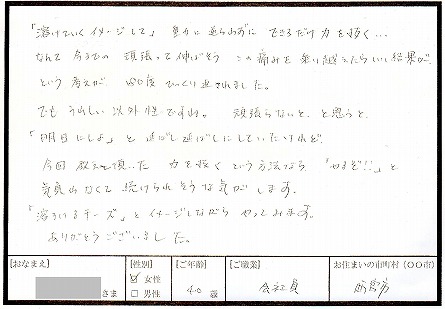 「溶けていくイメージして」重力に逆らわずに できるだけ力を抜く…
なんて今までの 頑張って伸ばそう この痛みを乗り越えたらいい結果が、
という考えが、180度ひっくり返されました。
でもうれしい以外性ですね。 頑張らないと、と思うと
「明日にしよ」と 延ばし延ばしにしていたけれど
今回教えて頂いた 力を抜くという方法なら 「やるぞ!!」と
気負わなくて続けられそうな気がします。
「溶けるチーズ」とイメージしながら やってみます。
ありがとうございました。
【おなまえ】 さま
【性別】 ☑ 女性 □ 男性
【ご年齢】 40 歳
【ご職業】 会社員
お住まいの市町村(〇〇市) 西宮市